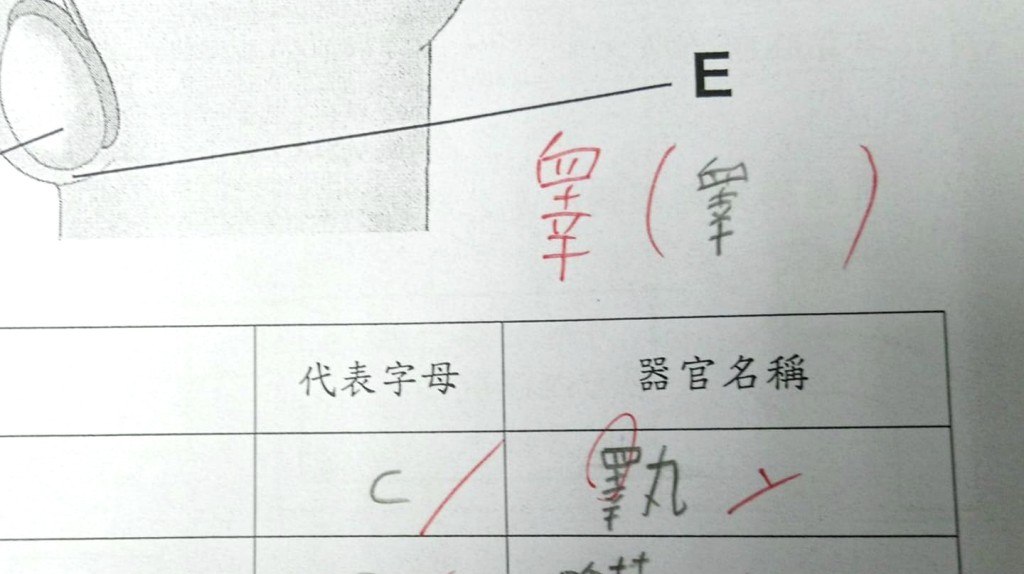 E
睪(睪)
代表字母 器官名稱
C 睪丸